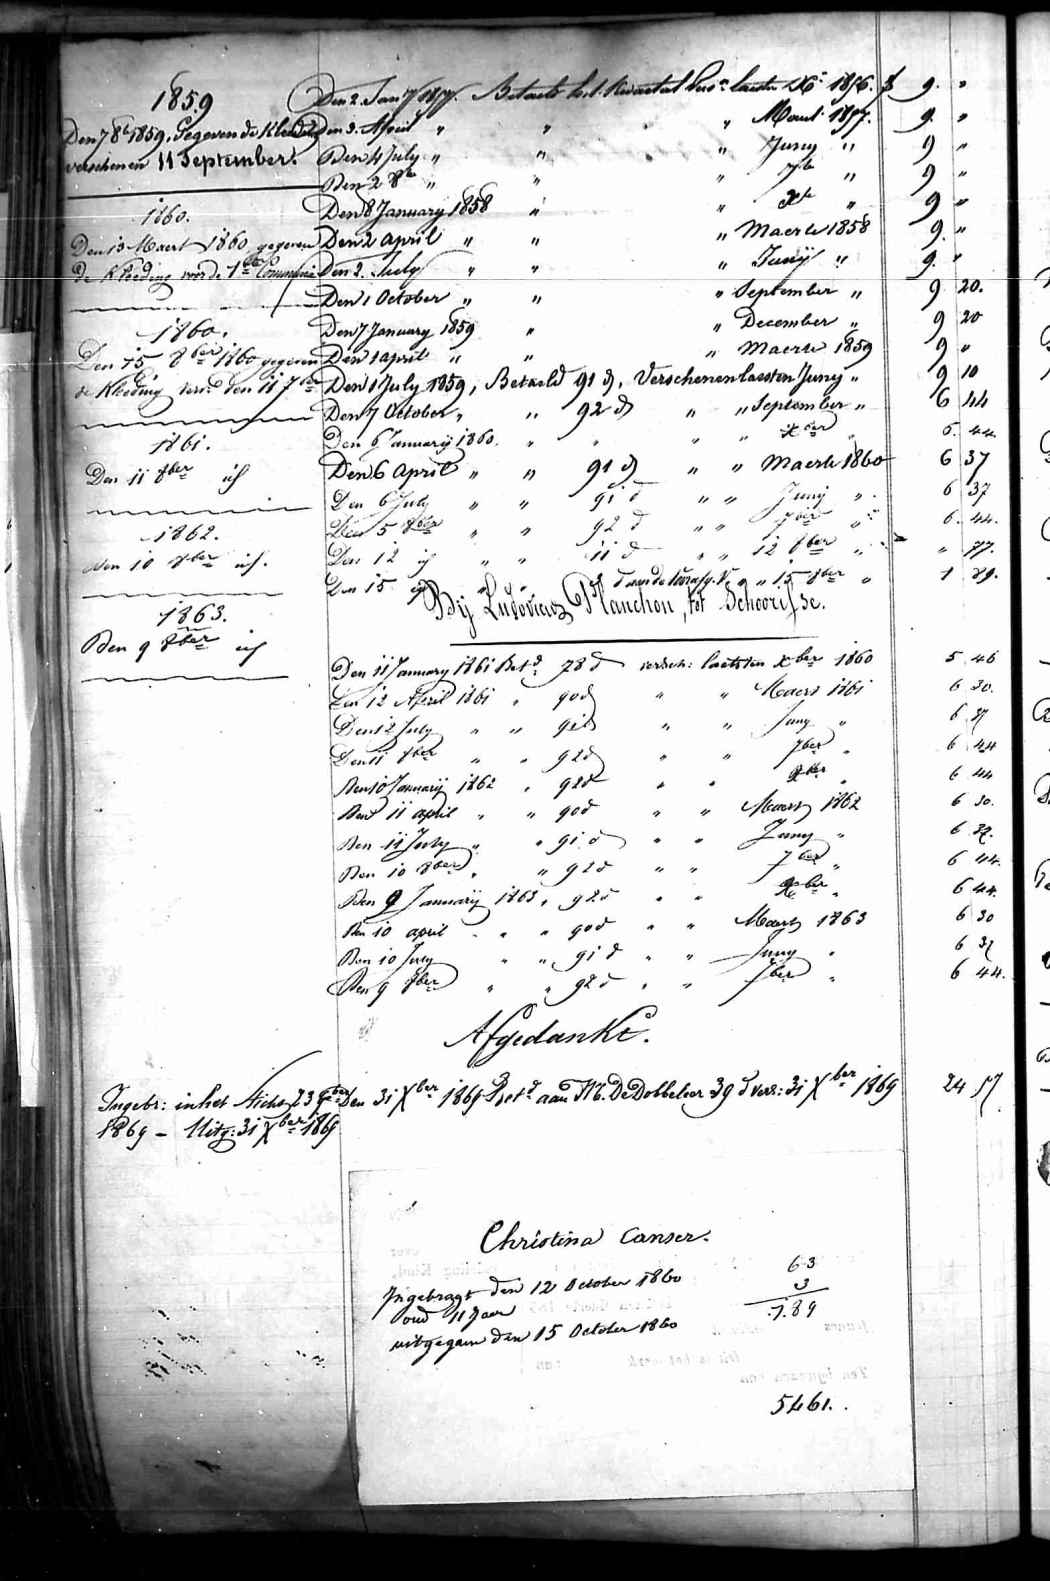 1859
Den 7 8b 1859, Gegeven de Kleeding
verschenen 11 September.
1860.
Den 13 Maert 1860 gegeven
de Kleeding voor de 1ste Communie
1860.
Den 15 8ber 1860 gegeven
de Kleeding versc. den 11 7ber
1861.
Den 11 8ber id
1862.
den 10 8ber id.
1863.
Den 9 8ber id
Den 2 Jany 1857. Betaelt het kwartael laesten 1856. f 9. "
Den 3. April " " " Maert 1857. 9. "
Den 4 July " " " Juny " 9 "
Den 2 8br " " " 7br " 9 "
Den 8 January 1858 " " Xbr " 9 "
Den 2 april " " " Maerte 1858 9. "
Den 3. July " " " Junij " 9. "
Den 1 October " " " September " 9 20.
Den 7 January 1859 " " December " 9 20
Den 1 april " " " Maerte 1859 9 "
Den 1 July 1859, Betaeld 91 d, Verschenen laesten Juny " 9 10
Den 7 October " " 92 d " " September " 6 44
Den 6 January 1860. " " " " Xber " 6. 44.
Den 6 April " " 91 d " " Maerte 1860 6 37
Den 6 July " " 91 d " " Junij " 6 37
Den 5 8ber " " 92 d " " 7ber " 6. 44.
Den 12 id " " 11 d " " 12 8ber " " 77.
Den 15 id " " " 15 8ber " 1 89.
Bij Ludovicus Planchon, tot Schoorisse.
Den 11 January 1861 Bet d 78 d versch: laetsten Xber 1860 5 46
Den 12 April 1861 " 90 d " " Maert 1861 6 30.
Den 12 July " " 91 d " " Juny " 6 37
Den 11 8ber " " 92 d " " 7ber " 6 44
Den 10 Januarij 1862 " 92 d " " Xber " 6 44
Den 11 april " " 90 d " " Maert 1862 6 30.
Den 11 July " " 91 d " " Juny " 6 37.
Den 10 8ber " " 92 d " " 7ber " 6 44.
Den 9 Januarij 1863 " 92 d " " Xber " 6 44.
Den 10 april " " 90 d " " Maert 1863 6 30
Den 10 July " " 91 d " " Juny " 6 37
Den 9 8ber " " 92 d " " 7ber " 6 44.
Afgedankt.
Ingebr: in het 23 9ber
1869 – Uitg: 31 Xber 1869
Den 31 Xber 1869 Bet d aan De Dobbeleer 39 d vers: 31 Xber 1869 24 57
Christina Canser.
Ingebragt den 12 October 1860
oud 11 Jaer
uitgegaen den 15 October 1860
63
3
1.89
5461.